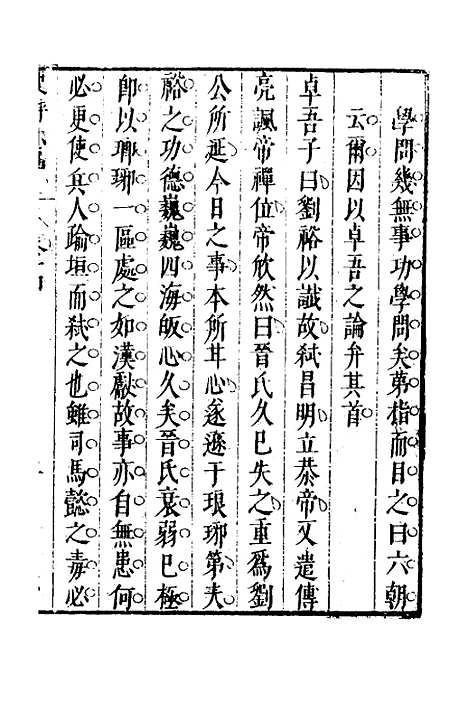 學問幾無事功學問矣第指而目之曰六朝
云爾因以卓吾之論弁其首
卓吾子曰劉裕以讖故弒昌明立恭帝又遣傳
亮諷帝禪位帝欣然曰晉氏久已失之重爲劉
公所延今日之事本所甘心遂遜于琅琊第夫
裕之功德巍巍四海皈心久矣晉氏衰弱已極
卽以琊琅一區處之如漢獻故事亦自無患何
必更使兵人踰垣而弒之也雖司馬懿之毒必